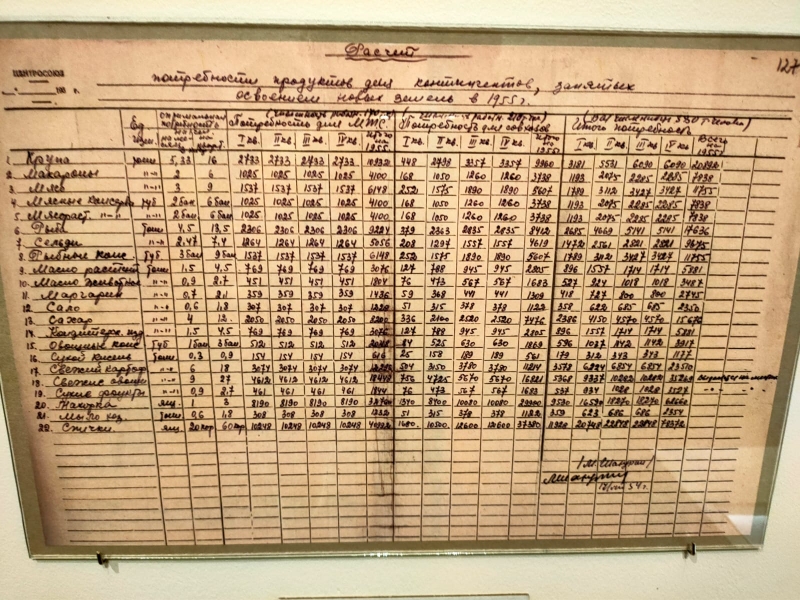 127
Расчет
ЦЕНТРОСОЮЗ
потребности продуктов для контингентов, занятых
освоением новых земель в 1955 г.
Ед. Потребность для МТС Потребность для совхозов Итого потребность
I кв. II кв. III кв. IV кв. I кв. II кв. III кв. IV кв. I кв. II кв. III кв. IV кв. Всего на 1955 г.
1. Крупа тонн 5,33 16 2733 2733 2733 2733 10932 448 2798 3357 3357 9960 3181 5531 6090 6090 20892
2. Макароны "-" 2 6 1025 1025 1025 1025 4100 168 1050 1260 1260 3738 1193 2075 2285 2285 7838
3. Мясо "-" 3 9 1537 1537 1537 1537 6148 252 1575 1890 1890 5607 1789 3112 3427 3427 11755
4. Мясные консервы туб 2 бан 6 бан 1025 1025 1025 1025 4100 168 1050 1260 1260 3738 1193 2075 2285 2285 7838
5. Мясораст. "-" "-" 2 бан 6 бан 1025 1025 1025 1025 4100 168 1050 1260 1260 3738 1193 2075 2285 2285 7838
6. Рыба тонн 4,5 13,5 2306 2306 2306 2306 9224 379 2363 2835 2835 8412 2685 4669 5141 5141 17636
7. Сельди "-" 2,47 7,4 1264 1264 1264 1264 5056 208 1297 1557 1557 4619 1472 2561 2821 2821 9675
8. Рыбные конс. туб 3 бан 9 бан 1537 1537 1537 1537 6148 252 1575 1890 1890 5607 1789 3112 3427 3427 11755
9. Масло растит. тонн 1,5 4,5 769 769 769 769 3076 127 788 945 945 2805 896 1557 1714 1714 5881
10. Масло животное "-" 0,9 2,7 451 451 451 451 1804 76 473 567 567 1683 527 924 1018 1018 3487
11. Маргарин "-" 0,7 2,1 359 359 359 359 1436 59 368 441 441 1309 418 727 800 800 2745
12. Сало "-" 0,6 1,8 307 307 307 307 51 315 378 378 1122 358 622 685 685 2350
13. Сахар "-" 4 12 2050 2050 2050 2050 8200 336 2100 2520 2520 7476 2386 4150 4570 4570 15676
14. Кондитерск. изд. "-" 1,5 4,5 769 769 769 769 3076 127 788 945 945 2805 896 1557 1714 1714 5881
15. Овощные конс. туб 1 бан 3 бан 512 512 512 512 2048 84 525 630 630 1869 596 1037 1142 1142 3917
16. Сухой кисель тонн 0,3 0,9 154 154 154 154 616 25 158 189 189 561 179 312 343 343 1177
17. Свежий картоф. "-" 6 18 3074 3074 3074 3074 504 3150 3780 3780 11214 3578 6224 6854 6854 23510
18. Свежие овощи "-" 9 27 4612 4612 4612 4612 18448 756 4725 5670 5670 16821 5368 9337 10282 10282 35269
19. Сухие фрукты "-" 0,9 2,7 461 461 461 461 1844 76 473 567 567 1683 537 934 1028 1028
20. Махорка ящ. 1 3 8190 8190 8190 8190 32760 1340 8400 10080 10080 29900 9530 16590 18270 18270 62660
21. Мыло хоз. тонн 0,6 1,8 308 308 308 308 1232 51 315 378 378 1122 359 623 686 686 2354
22. Спички ящ. 20 кор 60 кор 10248 10248 10248 10248 40992 1680 10500 12600 12600 37380 20748 22848 22848 78372